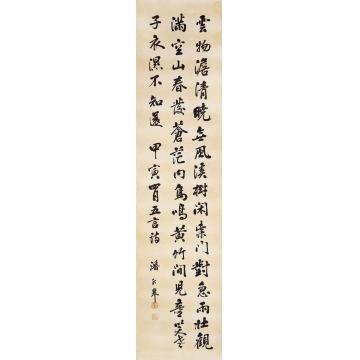 雲物澹清曉無風溪樹閑柴門對急雨壯觀
滿空山春發蒼茫内鳥鳴黄竹間兒童笑老
子衣濕不知還 甲寅四月五言詩 潘齡皋